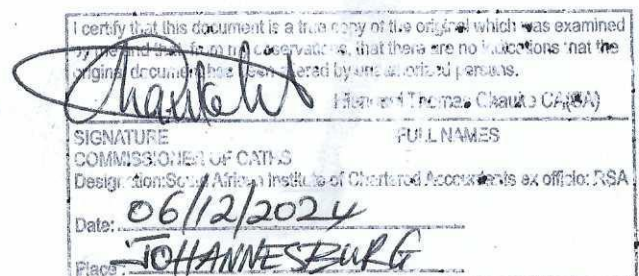 I certify that this document is a true copy of the original which was examined
by me and that, from my observations, that there are no indications that the
original document has been altered by unauthorized persons.
Thomas Chauke CA(SA)
SIGNATURE FULL NAMES
COMMISSIONER OF OATHS
Designation: South African Institute of Chartered Accountants ex officio: RSA
Date: 06/12/2024
Place: JOHANNESBURG